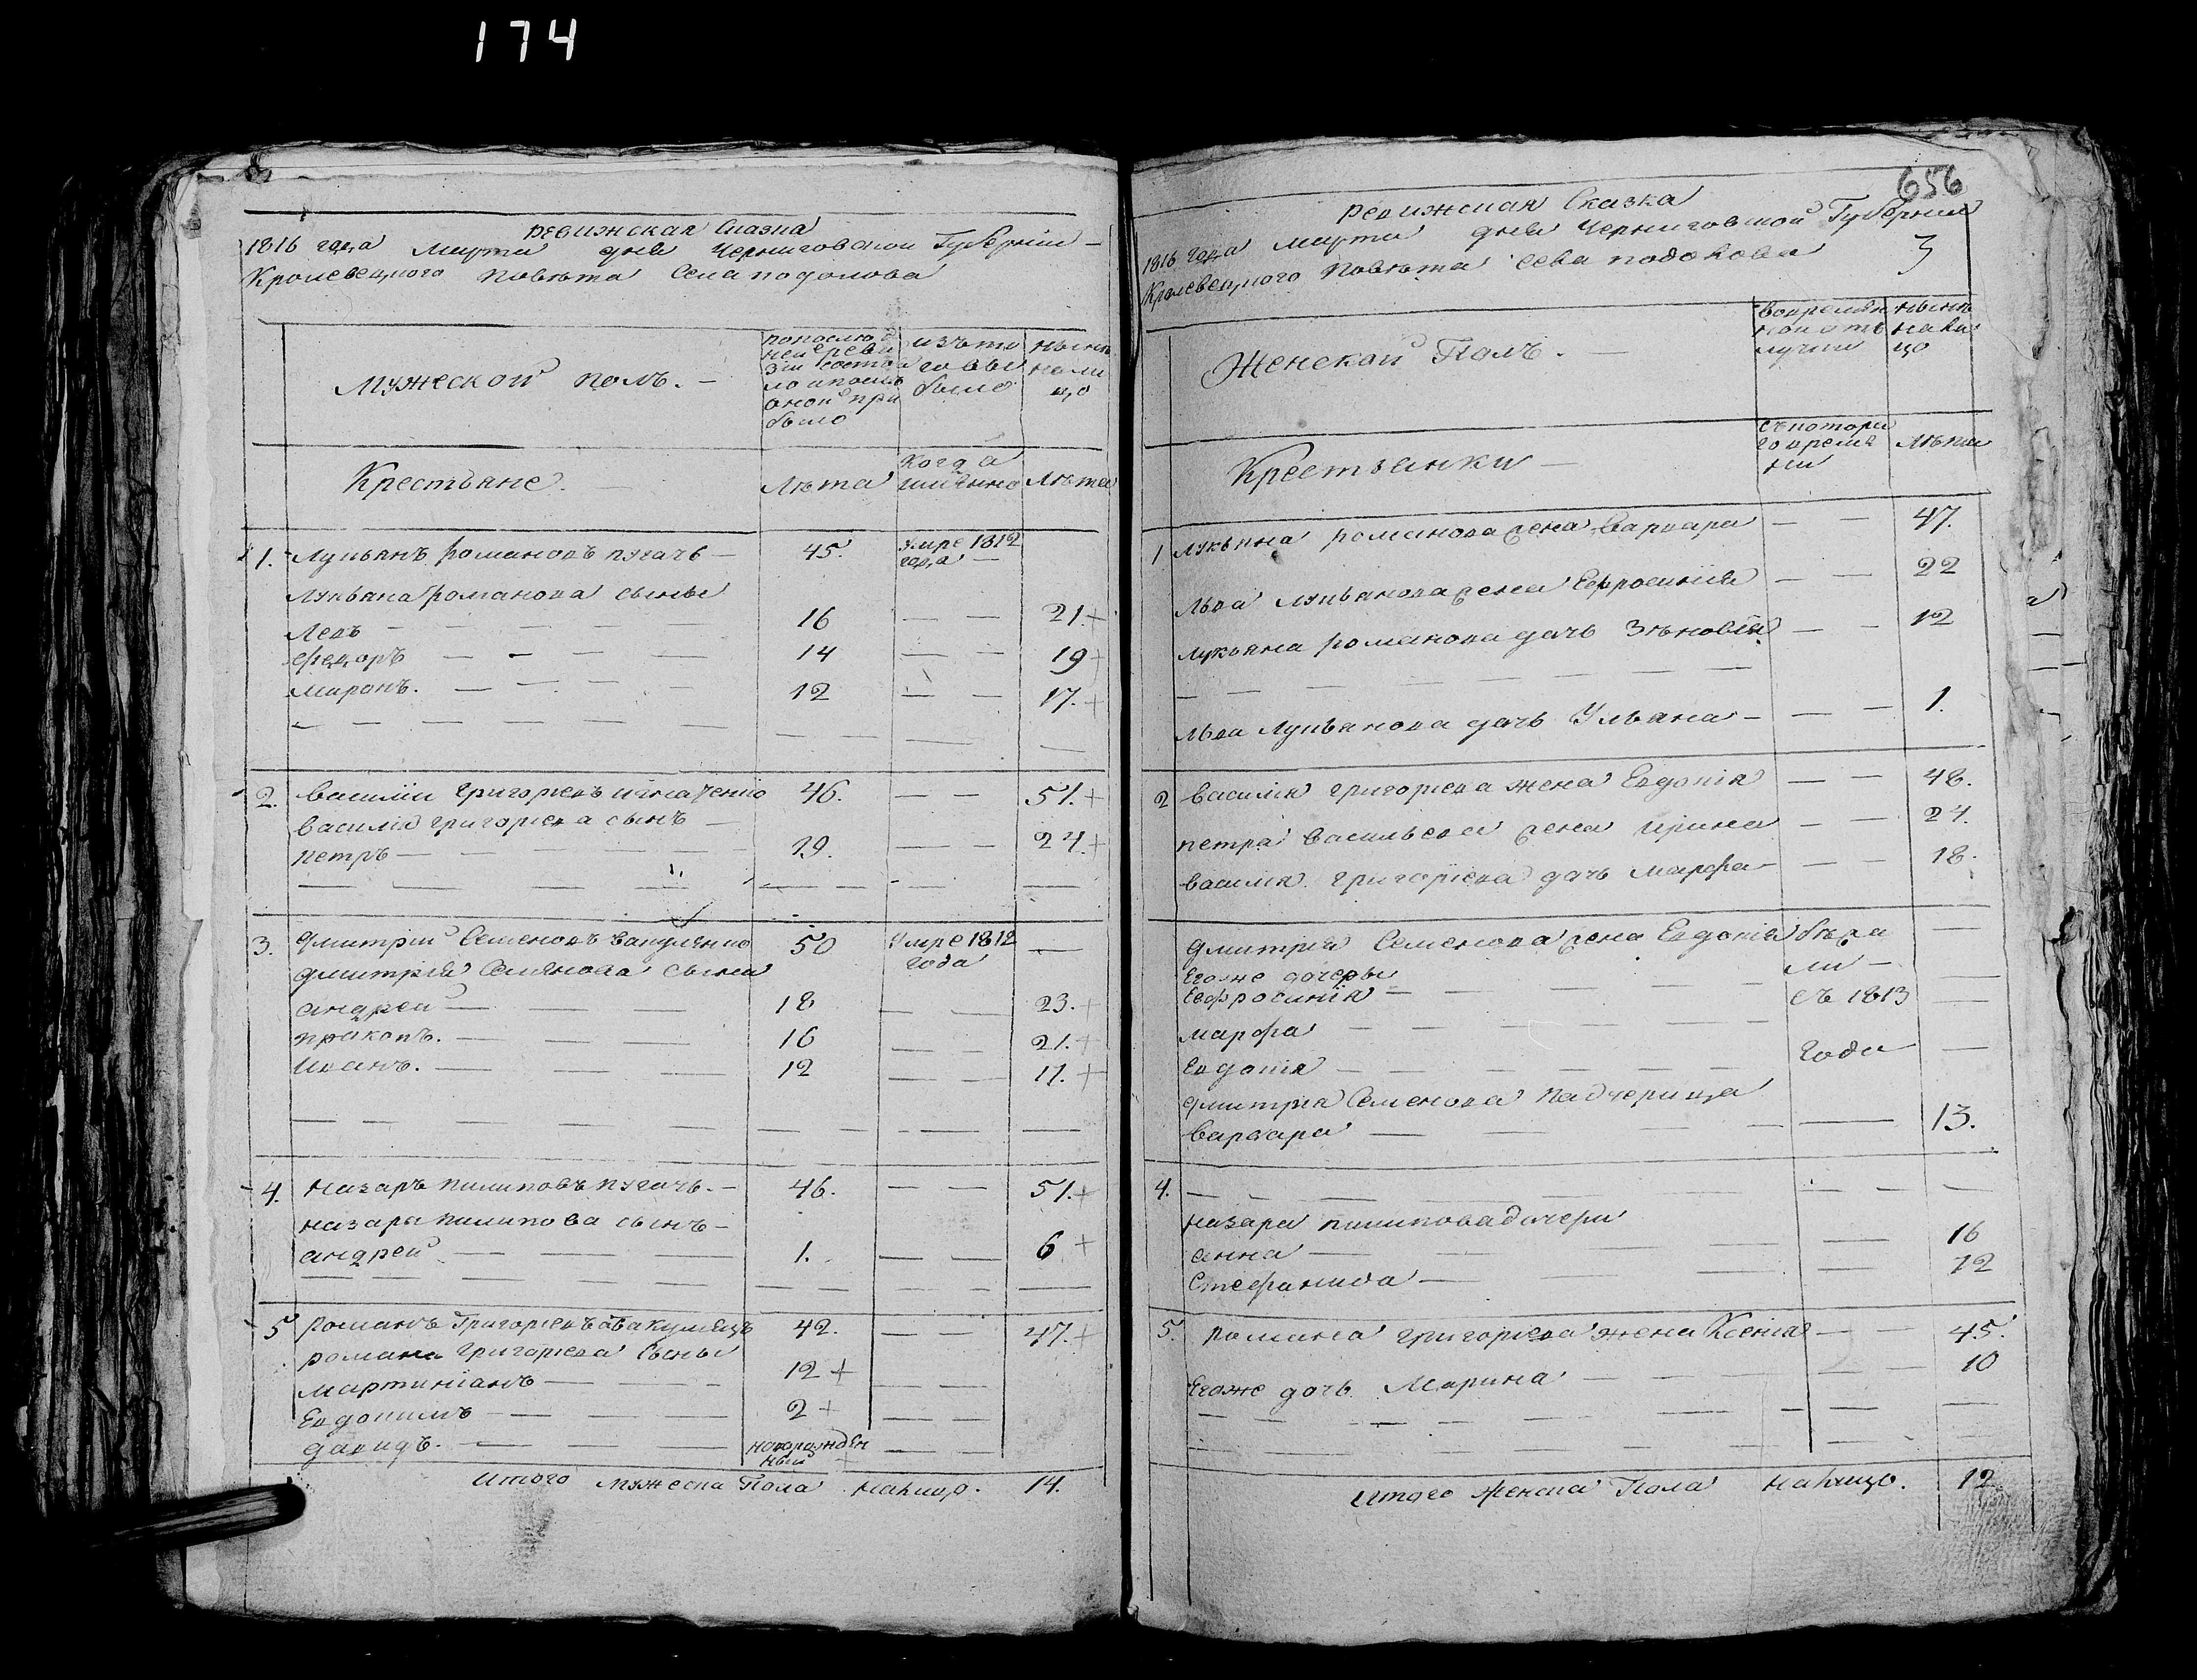 174
ревижская сказка
1816 года марта дня Черниговской Губернии
Кролевецкого Повѣта Села подолова
Мужеской полъ.
попослѣд
ней реви
зіи состоя
ло ипослѣ
оной при
было
изъ то
го вы
было
нынѣ
нали
цо
Крестьяне.
Лѣта
когда
имянно
Лѣта
1. Лукьянъ романовъ пугачъ 45. Умре 1812
года
Лукьяна романова сыны
Левъ 16 21. +
федоръ 14 19 +
миронъ. 12 17. +
2. василіи григорьевъ игнатенко 46. 51. +
василія григорьева сынъ
петръ 19. 24 +
3. дмитріи Семеновъ вакуленко 50 Умре 1812
года
дмитрія Семенова сыны
андреи 18 23. +
пракопъ. 16 21. +
иванъ. 12 17. +
4. назаръ пилиповъ пугачъ. 46. 51. +
назара пилипова сынъ
андреи 1. 6 +
5 романъ Григорьевъ 42. 47. +
романа григорьева сыны
мартиніанъ 12 +
Евдокимъ 2 +
давидъ. новорожден
ныи +
итого мужеска Пола налицо. 14.
656
ревижская сказка
1816 года марта дня Черниговской Губернии
Кролевецкого Повѣта села подолова
3
Женской Полъ.
вовремян
ной отъ
лучки
нынѣ
нали
цо
съкотора
го время
ни
Лѣта
Крестьянки
1 лукьяна романова жена варвара 47.
Льва лукьянова жена Ефросинія 22
лукьяна романова дочь Зѣновія 12
льва Лукьянова дочь Ульяна 1.
2 василія григорьева жена Евдокія 48.
петра васильева жена ирина 24.
василія григорьева дочь марфа 18.
дмитрія Семенова жена Евдокія бѣжа
Егоже дочеры ли
Евфросинія съ 1813
марфа
Евдокія года
дмитрія Семенова падчерица
варвара 13.
4.
назара пилипова дочери
анна 16
Стефанида 12
5. романа григорьева жена Ксенія 45.
Егоже дочь Марина 10
итого женска Пола налицо. 12